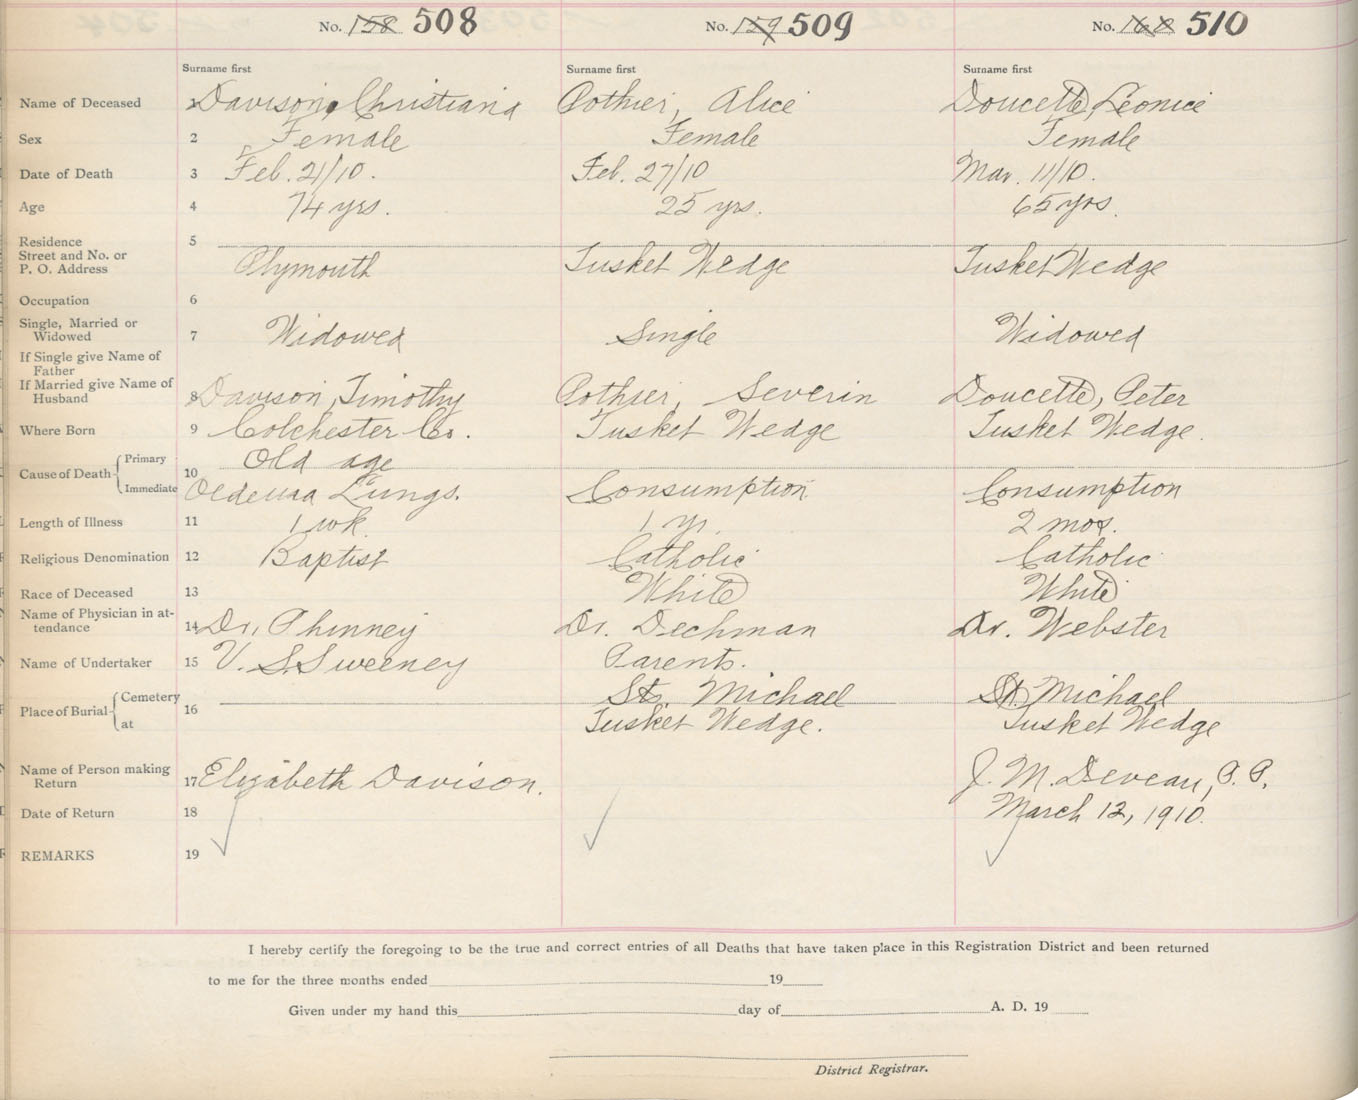 No. 158 508 No. 159 509 No. 160 510
Surname first Surname first Surname first
Name of Deceased 1 Davison, Christiana Pothier, Alice Doucette, Leonice
Sex 2 Female Female Female
Date of Death 3 Feb. 21/10. Feb. 27/10 Mar. 11/10.
Age 4 74 yrs. 25 yrs. 65 yrs.
Residence 5
Street and No. or
P. O. Address Plymouth Tusket Wedge Tusket Wedge
Occupation 6
Single, Married or
Widowed 7 Widowed Single Widowed
If Single give Name of
Father
If Married give Name of
Husband 8 Davison, Timothy Pothier, Severin Doucette, Peter
Where Born 9 Colchester Co. Tusket Wedge Tusket Wedge.
Cause of Death Primary 10 Old age
Immediate Oedema Lungs. Consumption Consumption
Length of Illness 11 1 wk. 1 yr. 2 mos.
Religious Denomination 12 Baptist Catholic Catholic
Race of Deceased 13 White White
Name of Physician in at-
tendance 14 Dr. Phinney Dr. Dechman Dr. Webster
Name of Undertaker 15 V. S. Sweeney Parents.
Place of Burial Cemetery 16 St. Michael St. Michael
at Tusket Wedge. Tusket Wedge
Name of Person making
Return 17 Elizabeth Davison. J. M. Deveau, P. P.
Date of Return 18 March 12, 1910.
REMARKS 19
I hereby certify the foregoing to be the true and correct entries of all Deaths that have taken place in this Registration District and been returned
to me for the three months ended 19
Given under my hand this day of A. D. 19
District Registrar.